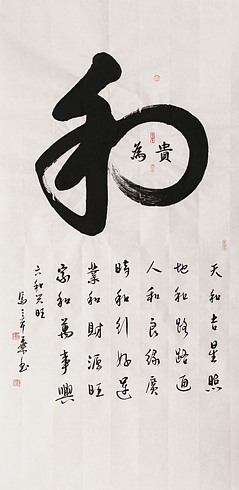 和
貴為
天和吉星照
地和路路通
人和良緣廣
時和引好運
業和財源旺
家和萬事興
六和共旺